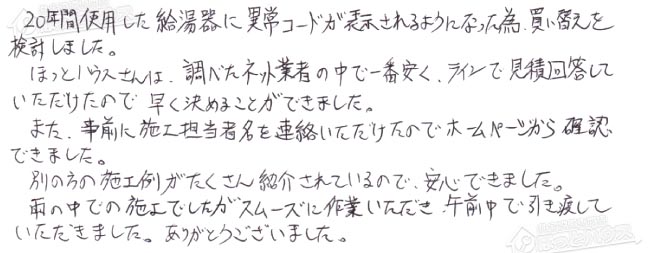 20年間使用した給湯器に異常コードが表示されるようになった為、買い替えを
検討しました。
ほっとハウスさんは、調べたネット業者の中で一番安く、ラインで見積回答して
いただけたので早く決めることができました。
また、事前に施工担当者名を連絡いただけたのでホームページから確認
できました。
別の方の施工例がたくさん紹介されているので、安心できました。
雨の中での施工でしたがスムーズに作業いただき、午前中で引き渡して
いただきました。ありがとうございました。